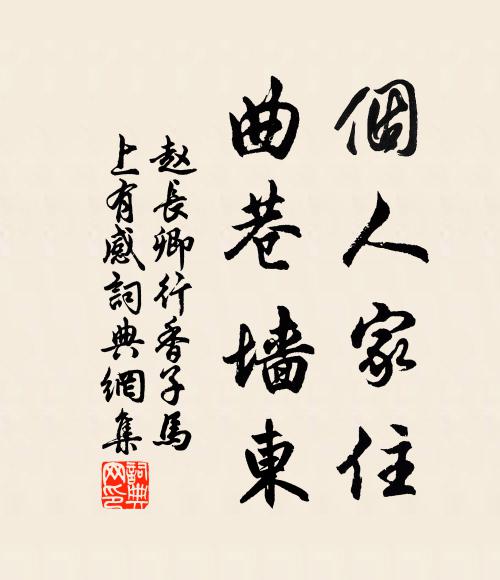 個人家住
曲巷墙東
赵長卿行香子馬
上有感詞典網集
詞典
网印